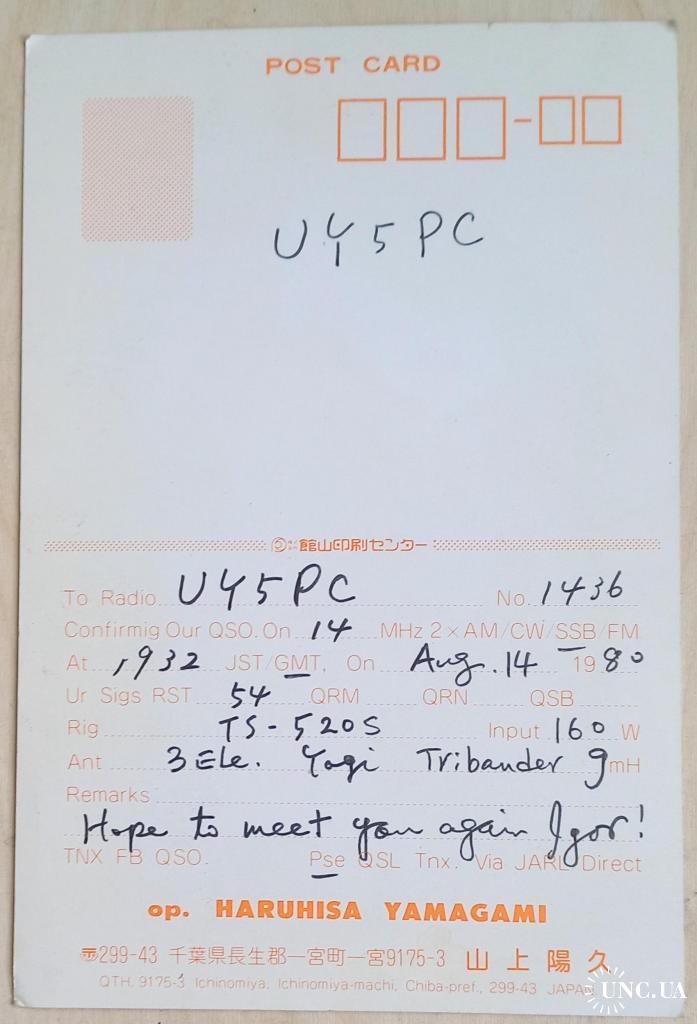 POST CARD
UY5PC
館山印刷センター
To Radio UY5PC No. 1436
Confirmig Our QSO. On 14 MHz 2×AM/CW/SSB/FM
At 1932 JST/GMT, On Aug. 14 1980
Ur Sigs RST 54 QRM QRN QSB
Rig TS-520S Input 160 W
Ant 3 Ele. Yagi Tribander 9mH
Remarks
Hope to meet you again Igor!
TNX FB QSO. Pse QSL Tnx. Via JARL Direct
op. HARUHISA YAMAGAMI
〠299-43 千葉県長生郡一宮町一宮9175-3 山上陽久
QTH. 9175-3 Ichinomiya, Ichinomiya-machi, Chiba-pref., 299-43 JAPAN
UNC.UA